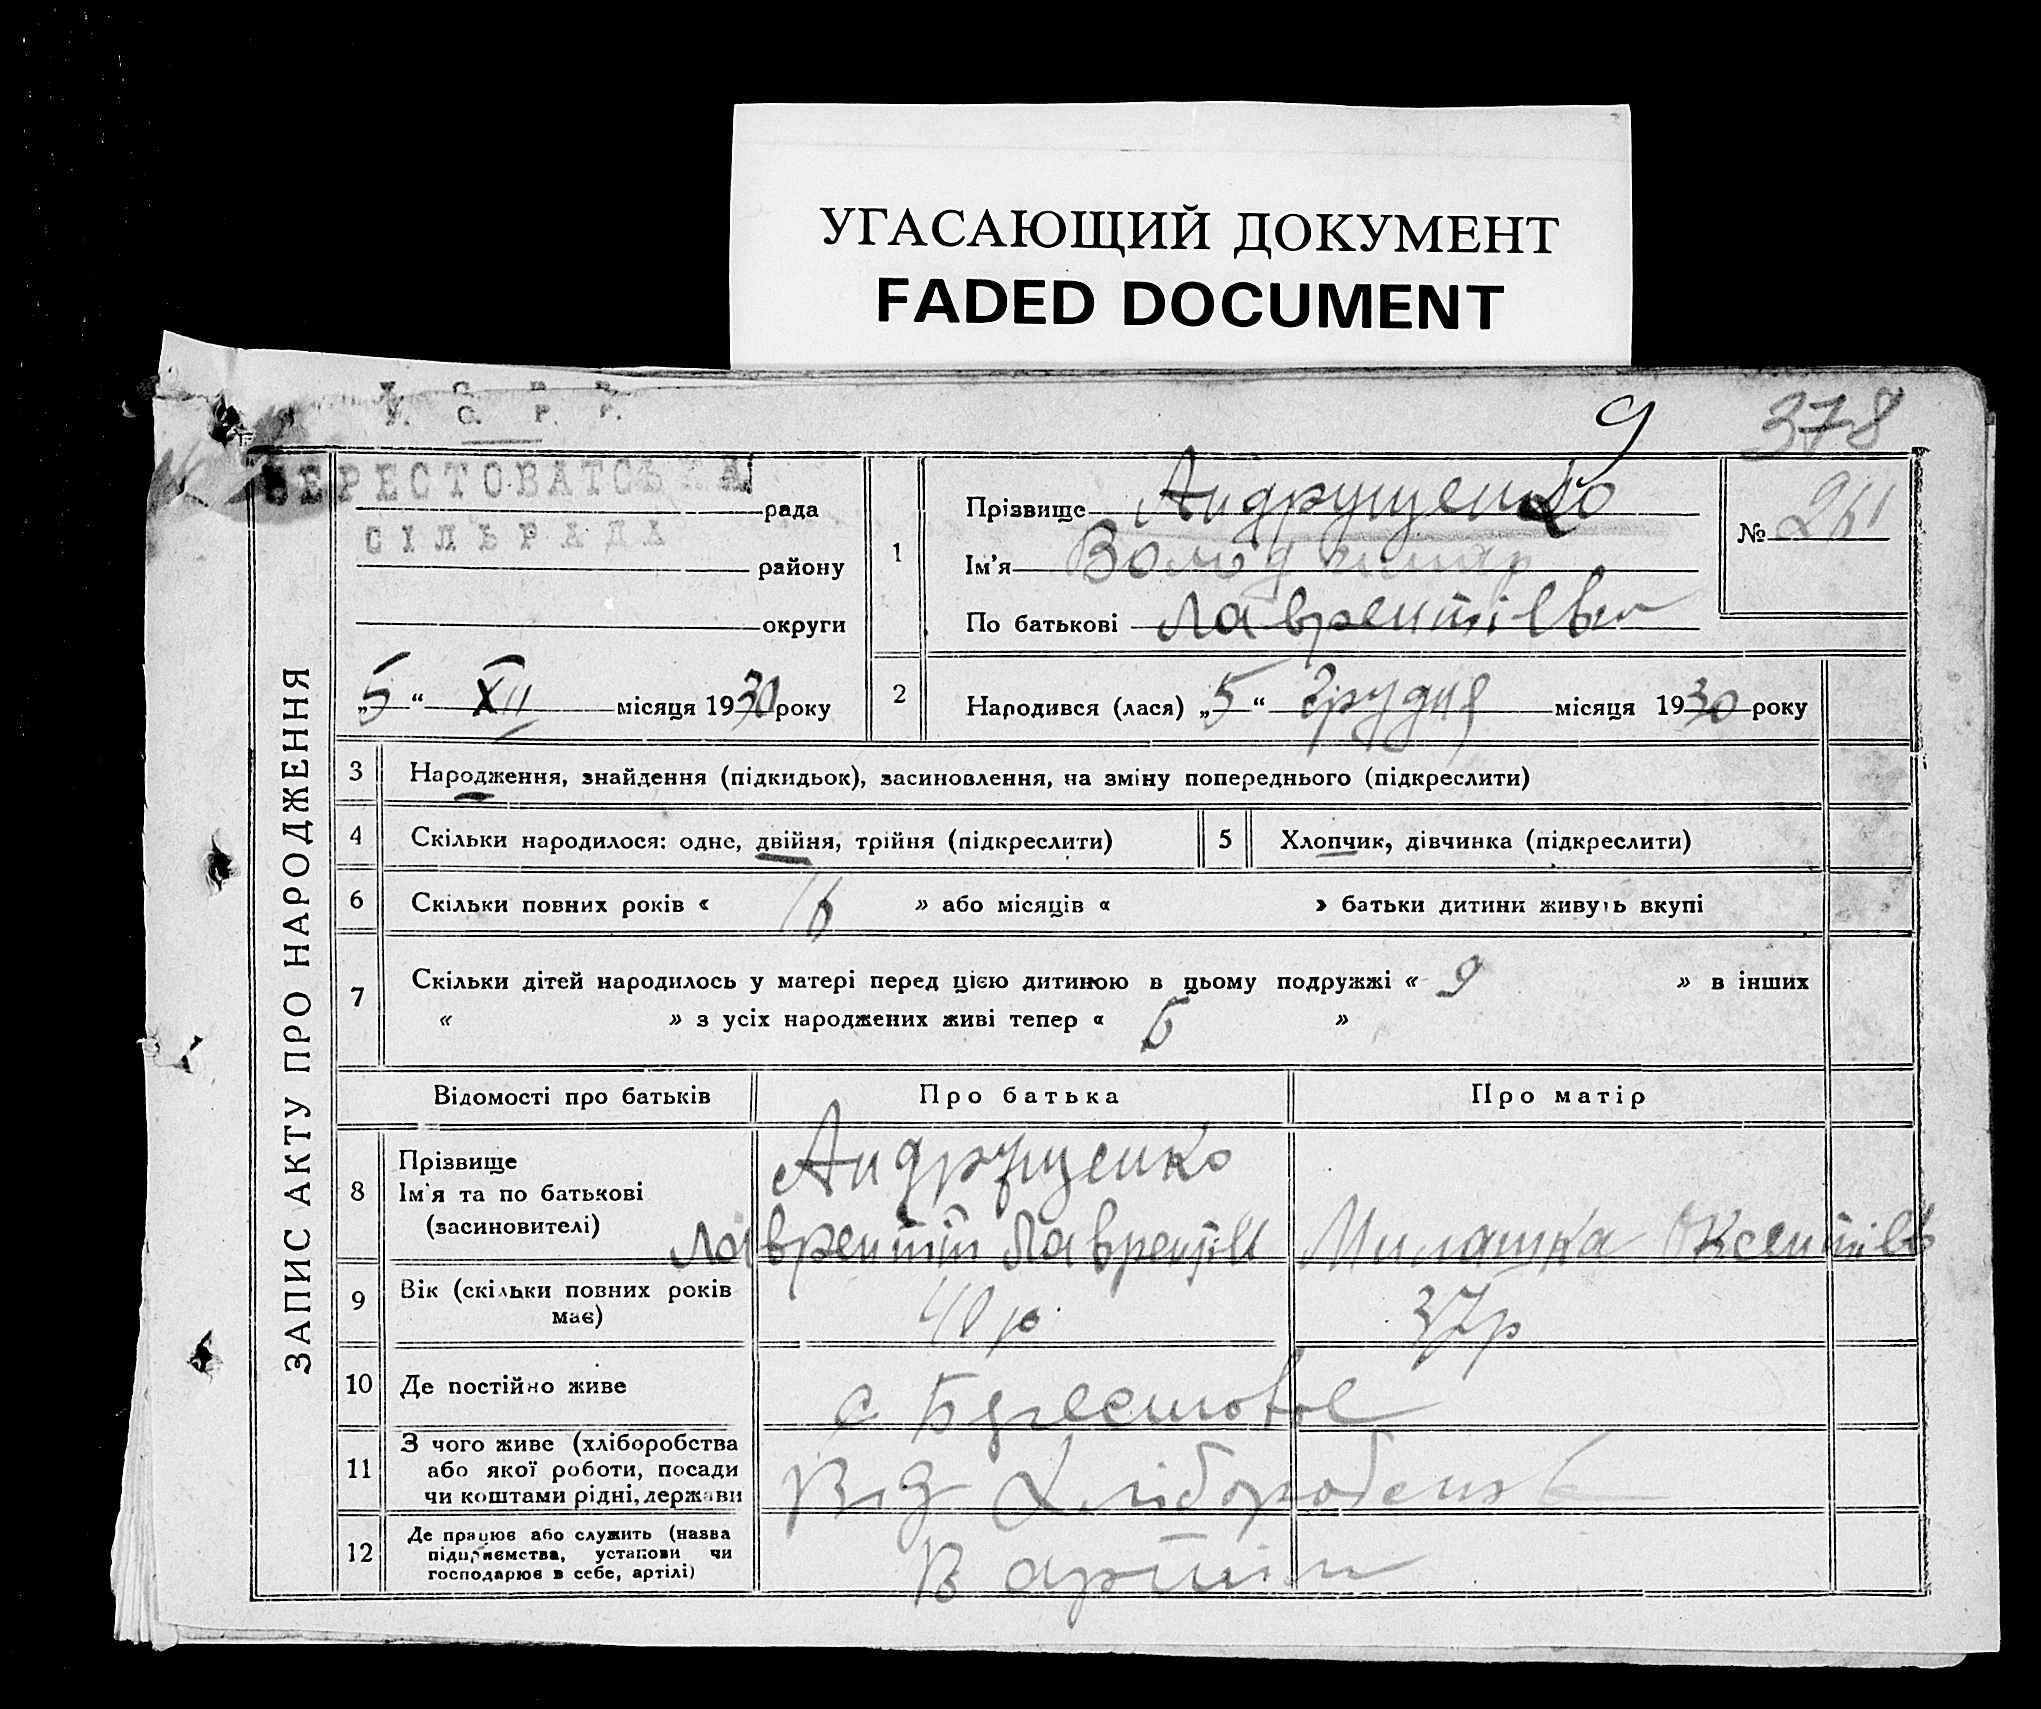 УГАСАЮЩИЙ ДОКУМЕНТ
FADED DOCUMENT
У. С. Р. Р.
9 378
БЕРЕСТОВАТСЬКА рада
СІЛЬРАДА
району
округи
„5“ XII місяця 1930 року
ЗАПИС АКТУ ПРО НАРОДЖЕННЯ
1 Прізвище Андрущенко
Ім'я Володимир
По батькові Лаврентіев
№
2 Народився (лася) „5“ Грудня місяця 1930 року
3 Народження, знайдення (підкидьок), засиновлення, на зміну попереднього (підкреслити)
4 Скільки народилося: одне, двійня, трійня (підкреслити) 5 Хлопчик, дівчинка (підкреслити)
6 Скільки повних років « 16 » або місяців « » батьки дитини живуть вкупі
7 Скільки дітей народилось у матері перед цією дитиною в цьому подружжі « 9 » в інших
« » з усіх народжених живі тепер « 5 »
Відомості про батьків Про батька Про матір
8 Прізвище Андрущенко
Ім'я та по батькові
(засиновителі) Лаврентій Лаврентів Милашка Оксентіів
9 Вік (скільки повних років має) 40 р 37р
10 Де постійно живе с Берестове
11 З чого живе (хліборобства
або якої роботи, посади
чи коштами рідні, держави Від Хліборобства
12 Де працює або служить (назва
підприємства, установи чи
господарює в себе, артілі) В артіли